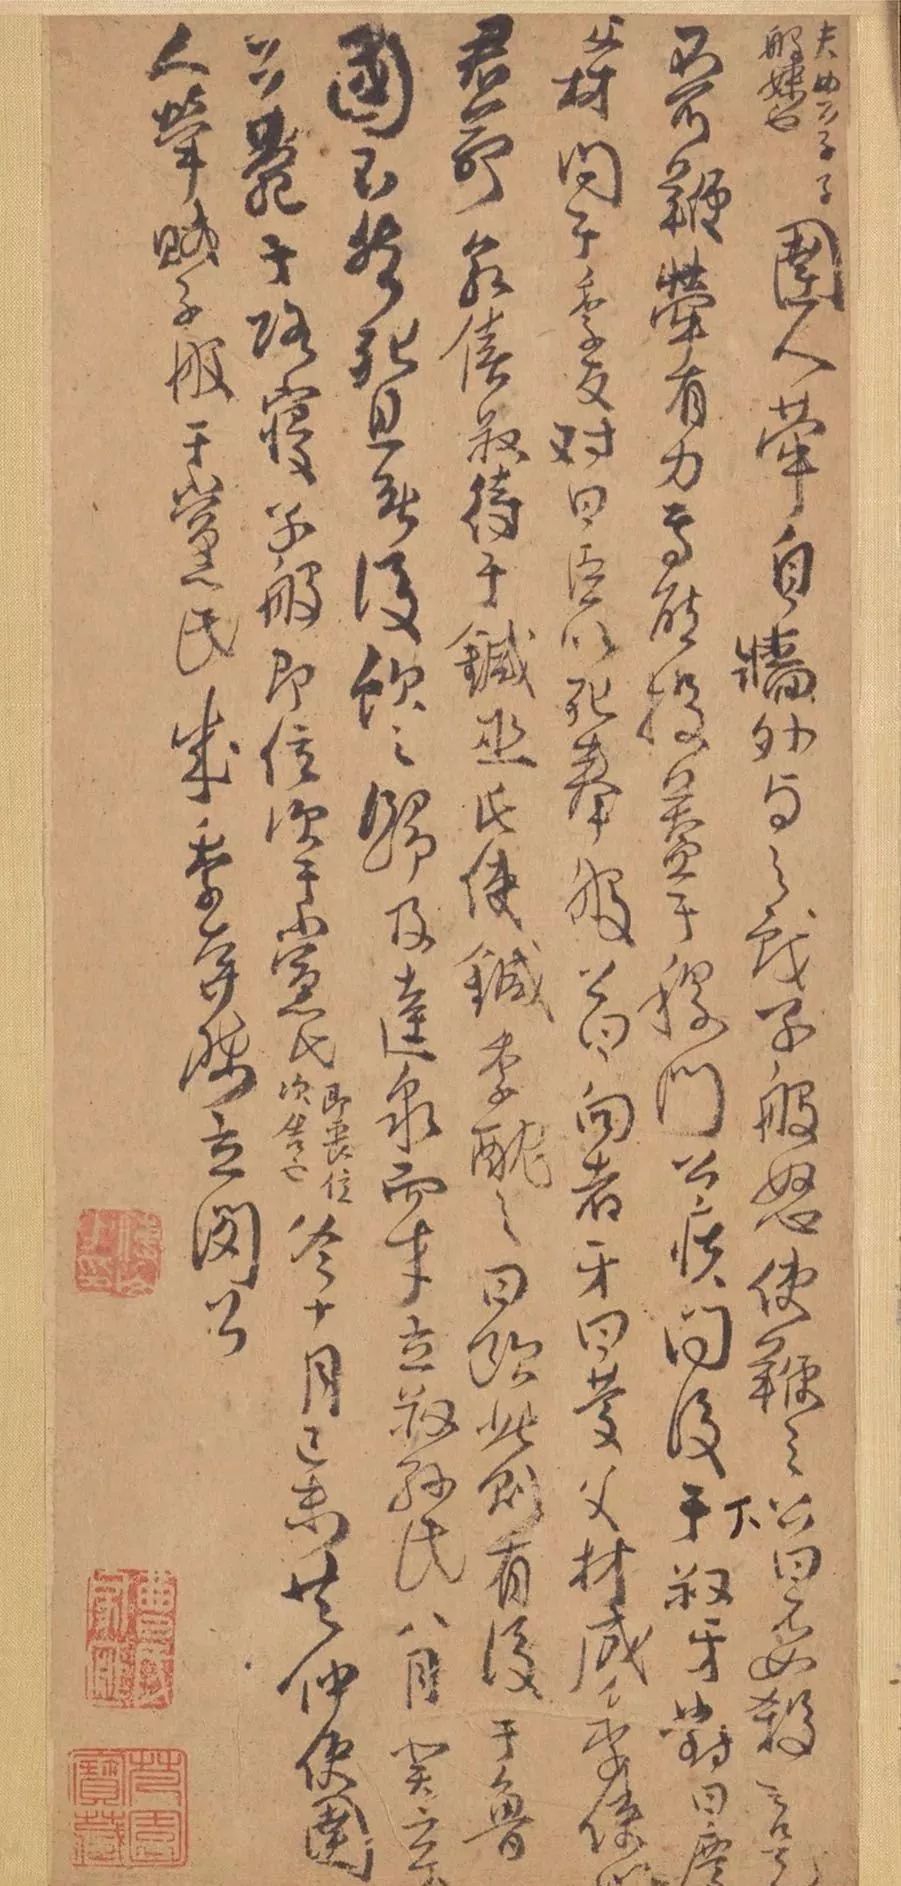 夫女公子子
般妹也
圉人犖自牆外與之戲子般怒使鞭之公曰不如殺之是
不可鞭犖有力焉能投蓋于稷門公疾問後于叔牙對曰慶
父材問于季友对曰臣以死奉般公曰向者牙曰慶父材成季使以
君命命僖叔待于鍼巫氏使鍼季酖之曰飲此則有後于魯
國不然死且無後飲之歸及逵泉而卒立叔孫氏八月癸亥
公薨于路寢子般即位次于黨氏
即喪位
次舍也
冬十月己未共仲使圉
人犖賊子般于黨氏成季奔陳立閔公